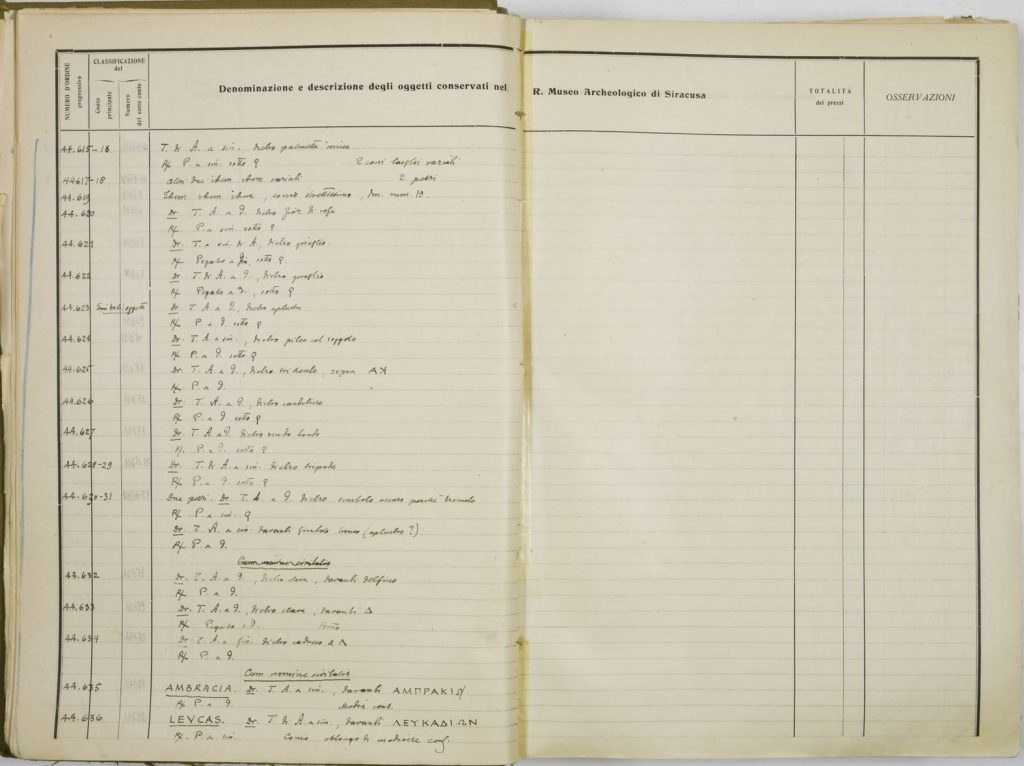 NUMERO D'ORDINE progressivo
CLASSIFICAZIONE del
Conto principale
Numero del sotto conto
Denominazione e descrizione degli oggetti conservati nel R. Museo Archeologico di Siracusa
TOTALITÀ dei prezzi
OSSERVAZIONI
44.615-16 T. di A. a sin., dietro palmetta ionica
R/ P. a sin. sotto Ϙ 2 coni larghi variati
44617-18 altri due idem idem variati 2 pezzi
44.619 Idem idem idem, conio strettissimo, dm. mm. 19.
44.620 Dr. T. A. a d. dietro fior di rosa
R/ P. a sin. sotto Ϙ
44.621 Dr. T. a sin. di A., dietro
R/ Pegaso a sin. sotto Ϙ
44.622 Dr T. di A. a d., dietro
R/ Pegaso a d., sotto Ϙ
44.623 Simboli: oggetti Dr T. A. a d., dietro aplustre
R/ P. a d. sotto Ϙ
44.624 Dr. T. A. a sin., dietro pileo col soggolo
R/ P. a d. sotto Ϙ
44.625 Dr. T. A. a d., dietro tridente, sopra
R/ P. a d.
44.626 Dr. T. A. a d., dietro candeliere
R/ P. a d. sotto Ϙ
44.627 Dr. T. A. a d. dietro scudo tondo
R/. P. a d. sotto Ϙ
44.628-29 Dr. T. di A. a sin. dietro tripode
R/ P. a d. sotto Ϙ
44.630-31 Due pezzi. Dr T. A. a d. dietro simbolo incerto perchè tremolo
R/. P. a sin. Ϙ
Dr. T. A. a sin. davanti simbolo (aplustre?)
R/ P. a d.
Cum nomine civitatis
44.632 Dr. T. A. a d., dietro clava, davanti delfino
R/ P. a d.
44.633 Dr. T. A. a d., dietro clava, davanti Δ
R/ Pegaso a d.
44.634 Dr T. A. a sin. dietro caduceo e Λ
R/ P. a d.
Cum nomine civitatis
44.635 AMBRACIA. Dr. T. A. a sin., davanti
R/ P. a d. Mediocre cons.
44.636 LEVCAS. Dr. T. di A. a sin., davanti ΛΕΥΚΑΔΙΩΝ
R/. P. a sin. Conio oblungo di mediocre cons.